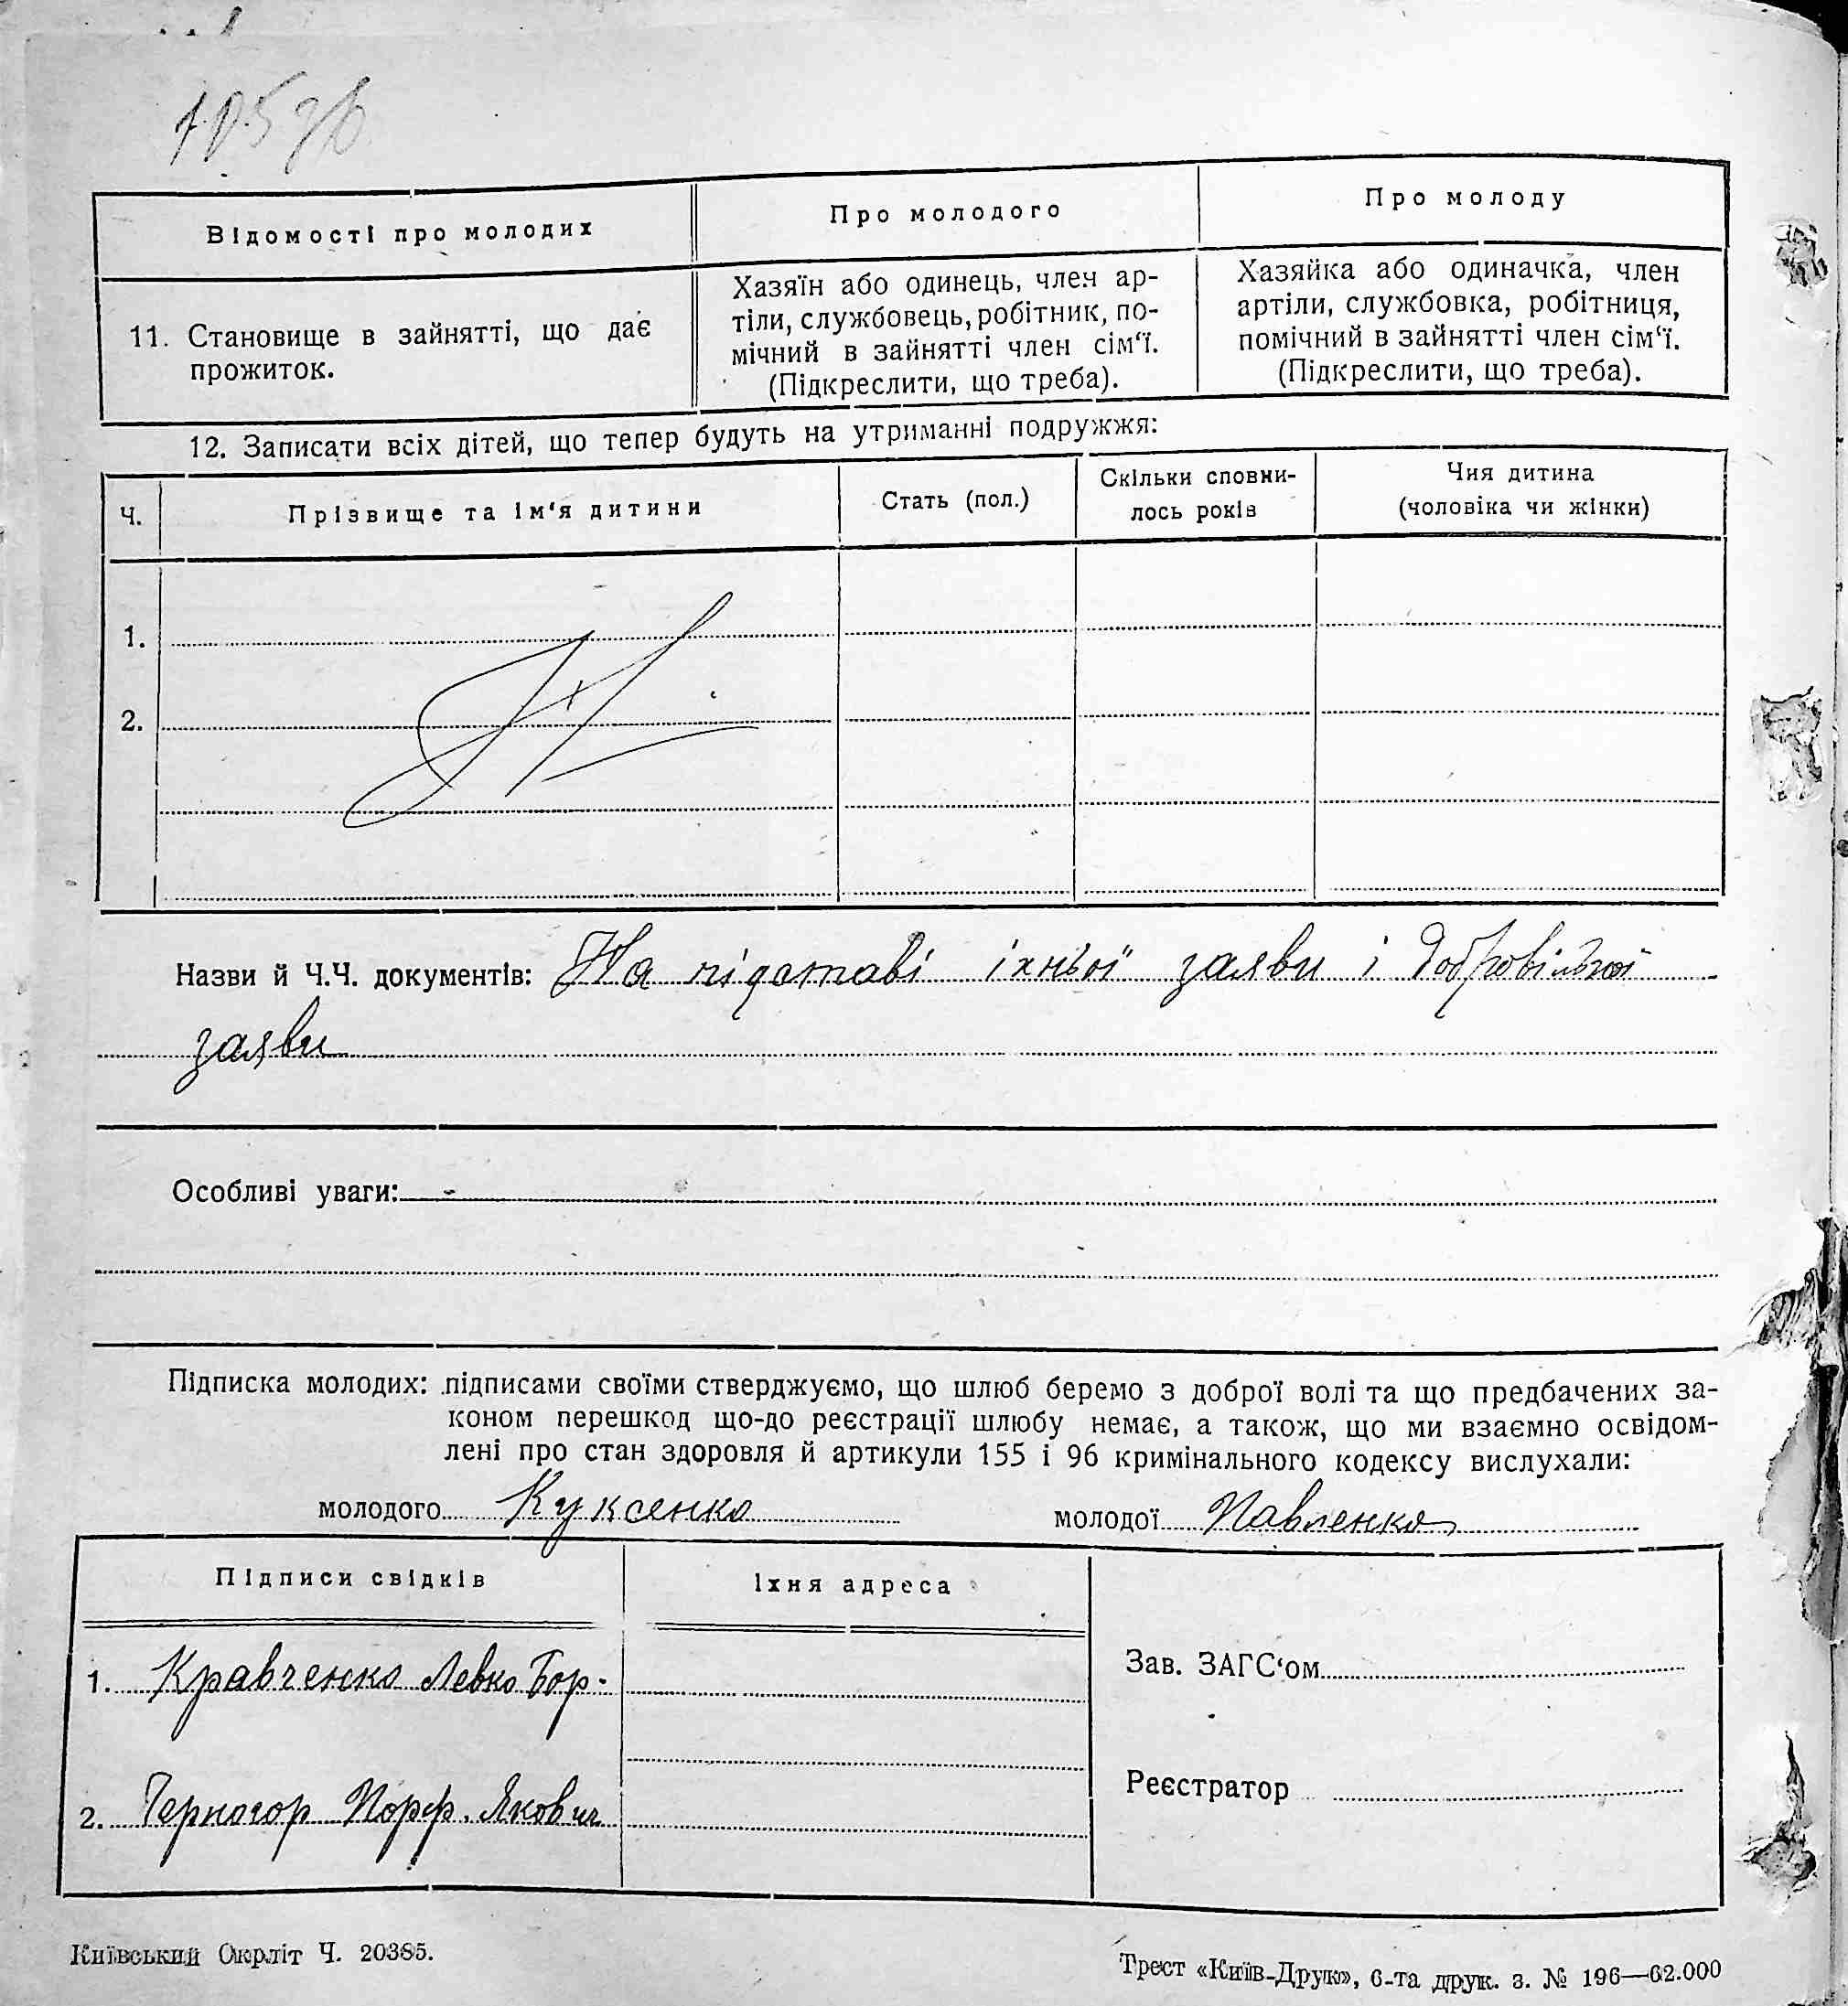 Відомості про молодих
Про молодого
Про молоду
11. Становище в зайнятті, що дає
прожиток.
Хазяїн або одинець, член ар-
тіли, службовець, робітник, по-
мічний в зайнятті член сім‘ї.
(Підкреслити, що треба).
Хазяйка або одиначка, член
артіли, службовка, робітниця,
помічний в зайнятті член сім‘ї.
(Підкреслити, що треба).
12. Записати всіх дітей, що тепер будуть на утриманні подружжя:
Ч.
Прізвище та ім‘я дитини
Стать (пол.)
Скільки сповни-
лось років
Чия дитина
(чоловіка чи жінки)
1.
2.
Назви й Ч.Ч. документів: На підставі їхньої заяви і добровільної
заяви
Особливі уваги: -
Підписка молодих: підписами своїми стверджуємо, що шлюб беремо з доброї волі та що предбачених за-
коном перешкод що-до реєстрації шлюбу немає, а також, що ми взаємно освідом-
лені про стан здоровля й артикули 155 і 96 кримінального кодексу вислухали:
молодого Куксенко молодої Павленко
Підписи свідків
Їхня адреса
1. Кравченко Левко Бор.
2. Черногор Порф. Якович
Зав. ЗАГС‘ом
Реєстратор
Київський Окрліт Ч. 20385.
Трест «Київ-Друк», 6-та друк. з. № 196—62.000